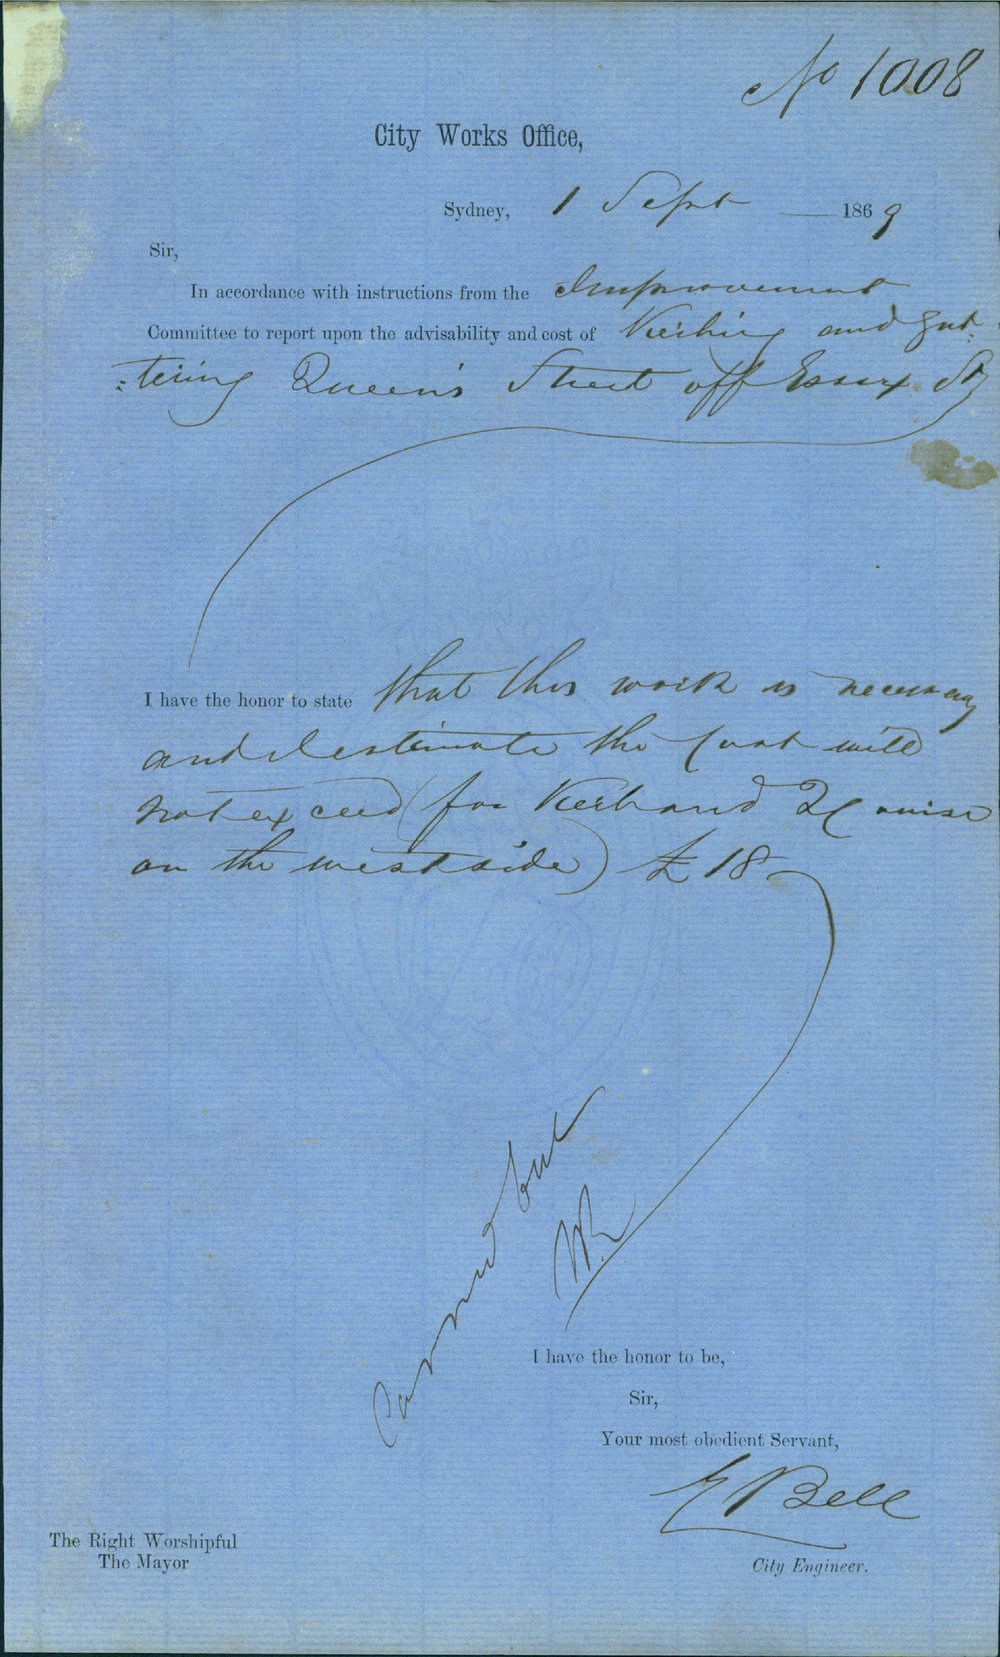 No 1008
City Works Office,
Sydney, 1 Sept 1869
Sir,
In accordance with instructions from the Improvement
Committee to report upon the advisability and cost of Kerbing and gut:
:tering Queen's Street off Essex St
I have the honor to state that this work is necessary
and I estimate the cost will
not exceed (for Kerb and 2 Course
on the west side) £18
Carried out
I have the honor to be,
Sir,
Your most obedient Servant,
E Bell
The Right Worshipful
The Mayor
City Engineer.